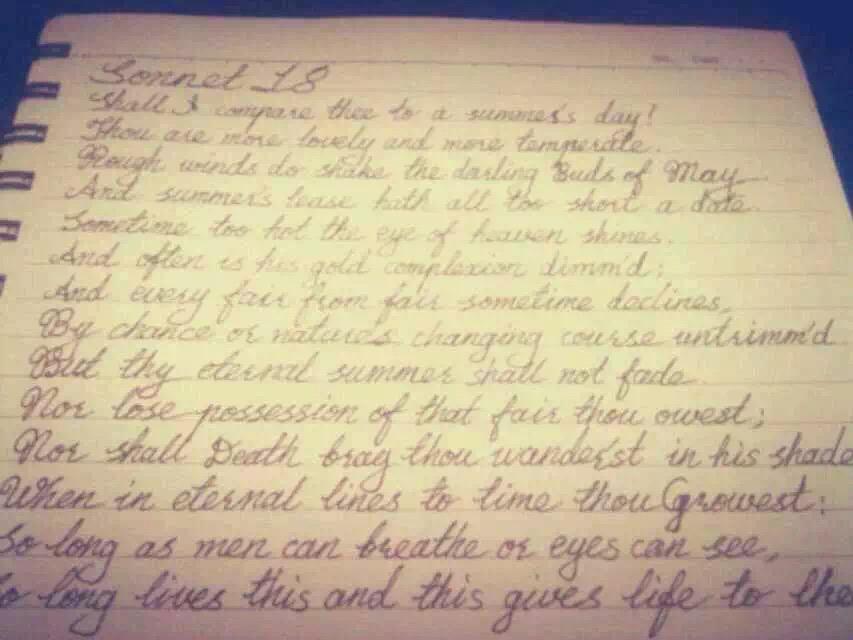 Sonnet 18
Shall I compare thee to a summer's day!
Thou are more lovely and more temperate.
Rough winds do shake the darling Buds of May
And summer's lease hath all too short a date.
Sometime too hot the eye of heaven shines.
And often is his gold complexion dimm'd;
And every fair from fair sometime declines,
By chance or nature's changing course untrimm'd
But thy eternal summer shall not fade.
Nor lose possession of that fair thou owest;
Nor shall Death brag thou wander'st in his shade
When in eternal lines to time thou Growest:
So long as men can breathe or eyes can see,
So long lives this and this gives life to the